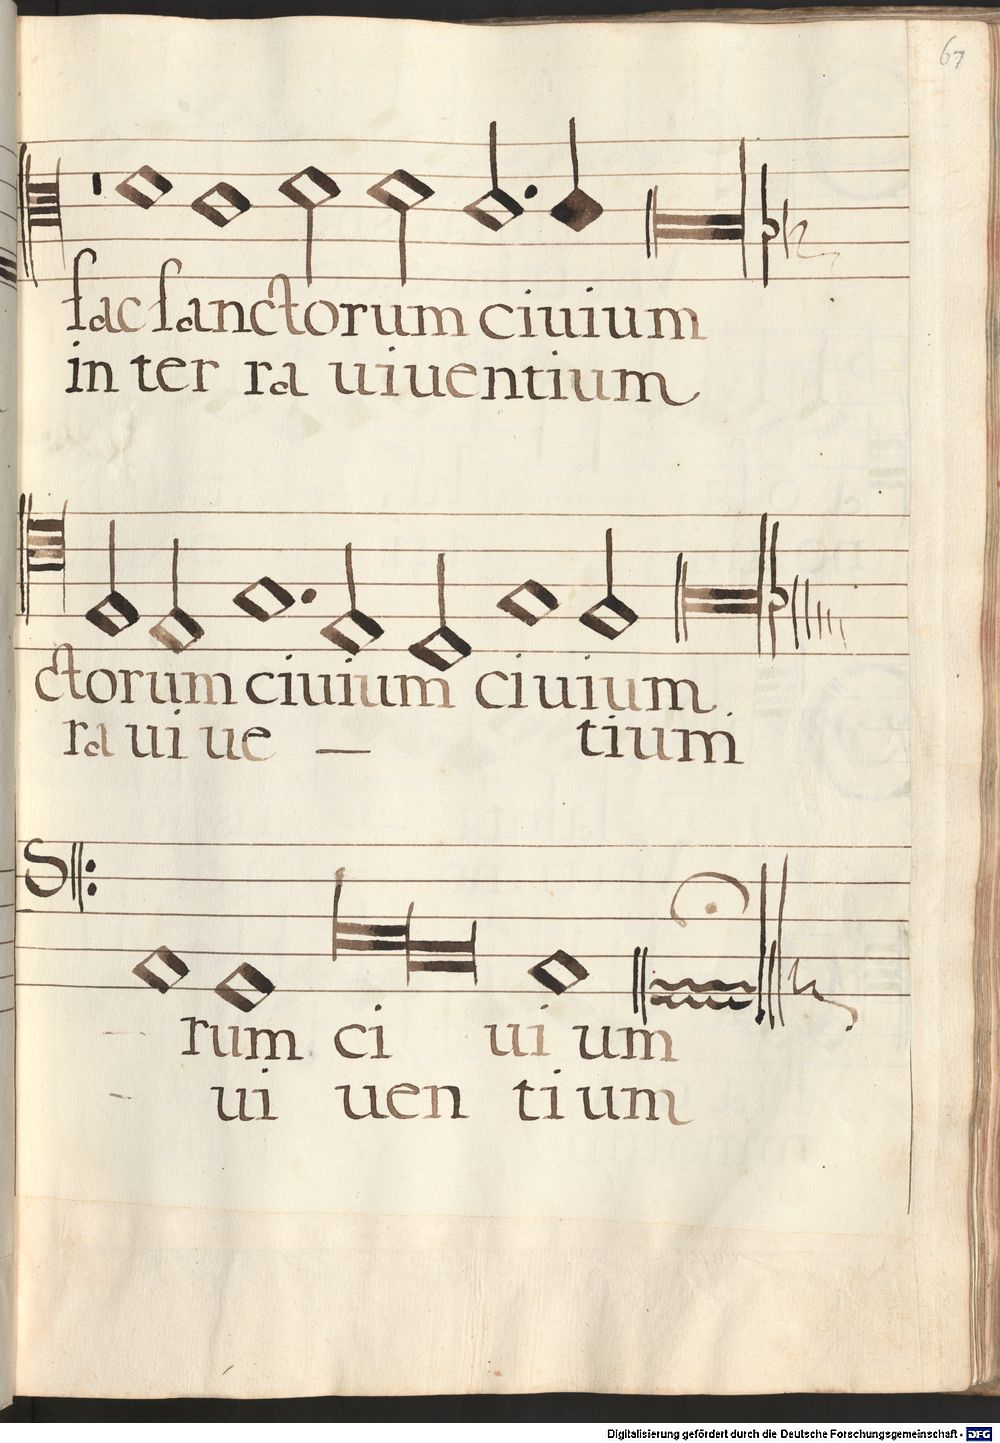 67
fac sanctorum ciuium
in ter ra uiuentium
ctorum ciuium ciuium.
ra ui ue — tium
rum ci ui um
ui uen ti um
Digitalisierung gefördert durch die Deutsche Forschungsgemeinschaft - DFG